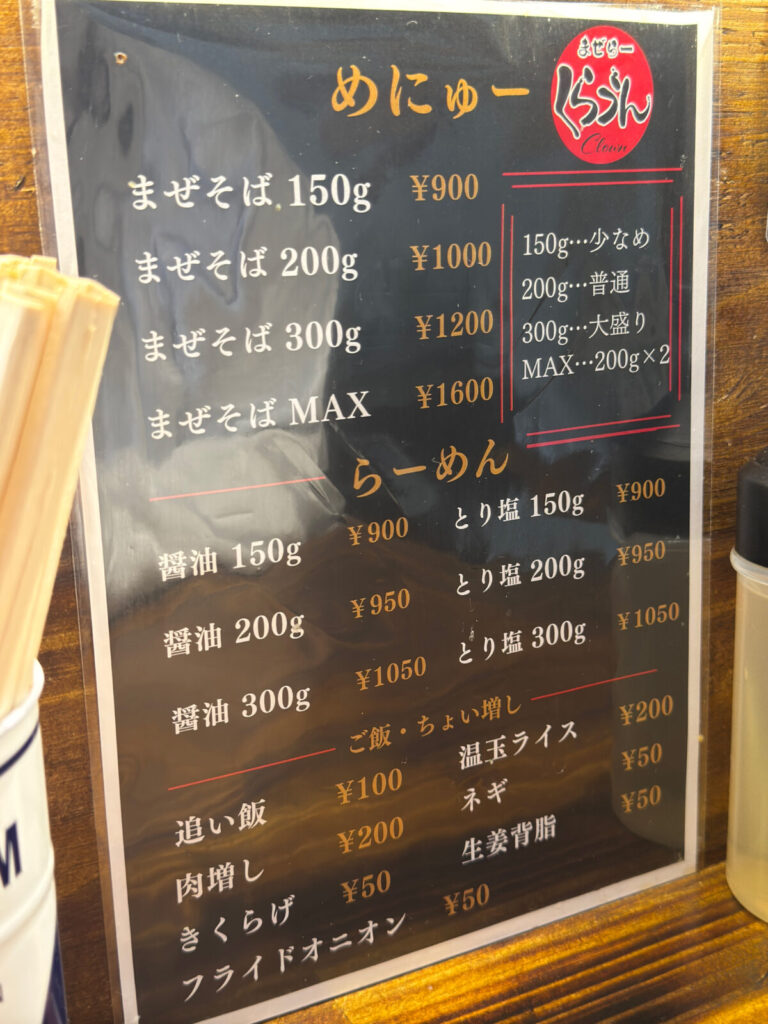 めにゅー
まぜゅー
くらうん
Clown
まぜそば 150g ¥900
まぜそば 200g ¥1000
まぜそば 300g ¥1200
まぜそば MAX ¥1600
150g…少なめ
200g…普通
300g…大盛り
MAX…200g×2
らーめん
醤油 150g ¥900
醤油 200g ¥950
醤油 300g ¥1050
とり塩 150g ¥900
とり塩 200g ¥950
とり塩 300g ¥1050
ご飯・ちょい増し
追い飯 ¥100
肉増し ¥200
きくらげ ¥50
フライドオニオン ¥50
温玉ライス ¥200
ネギ ¥50
生姜背脂 ¥50
M